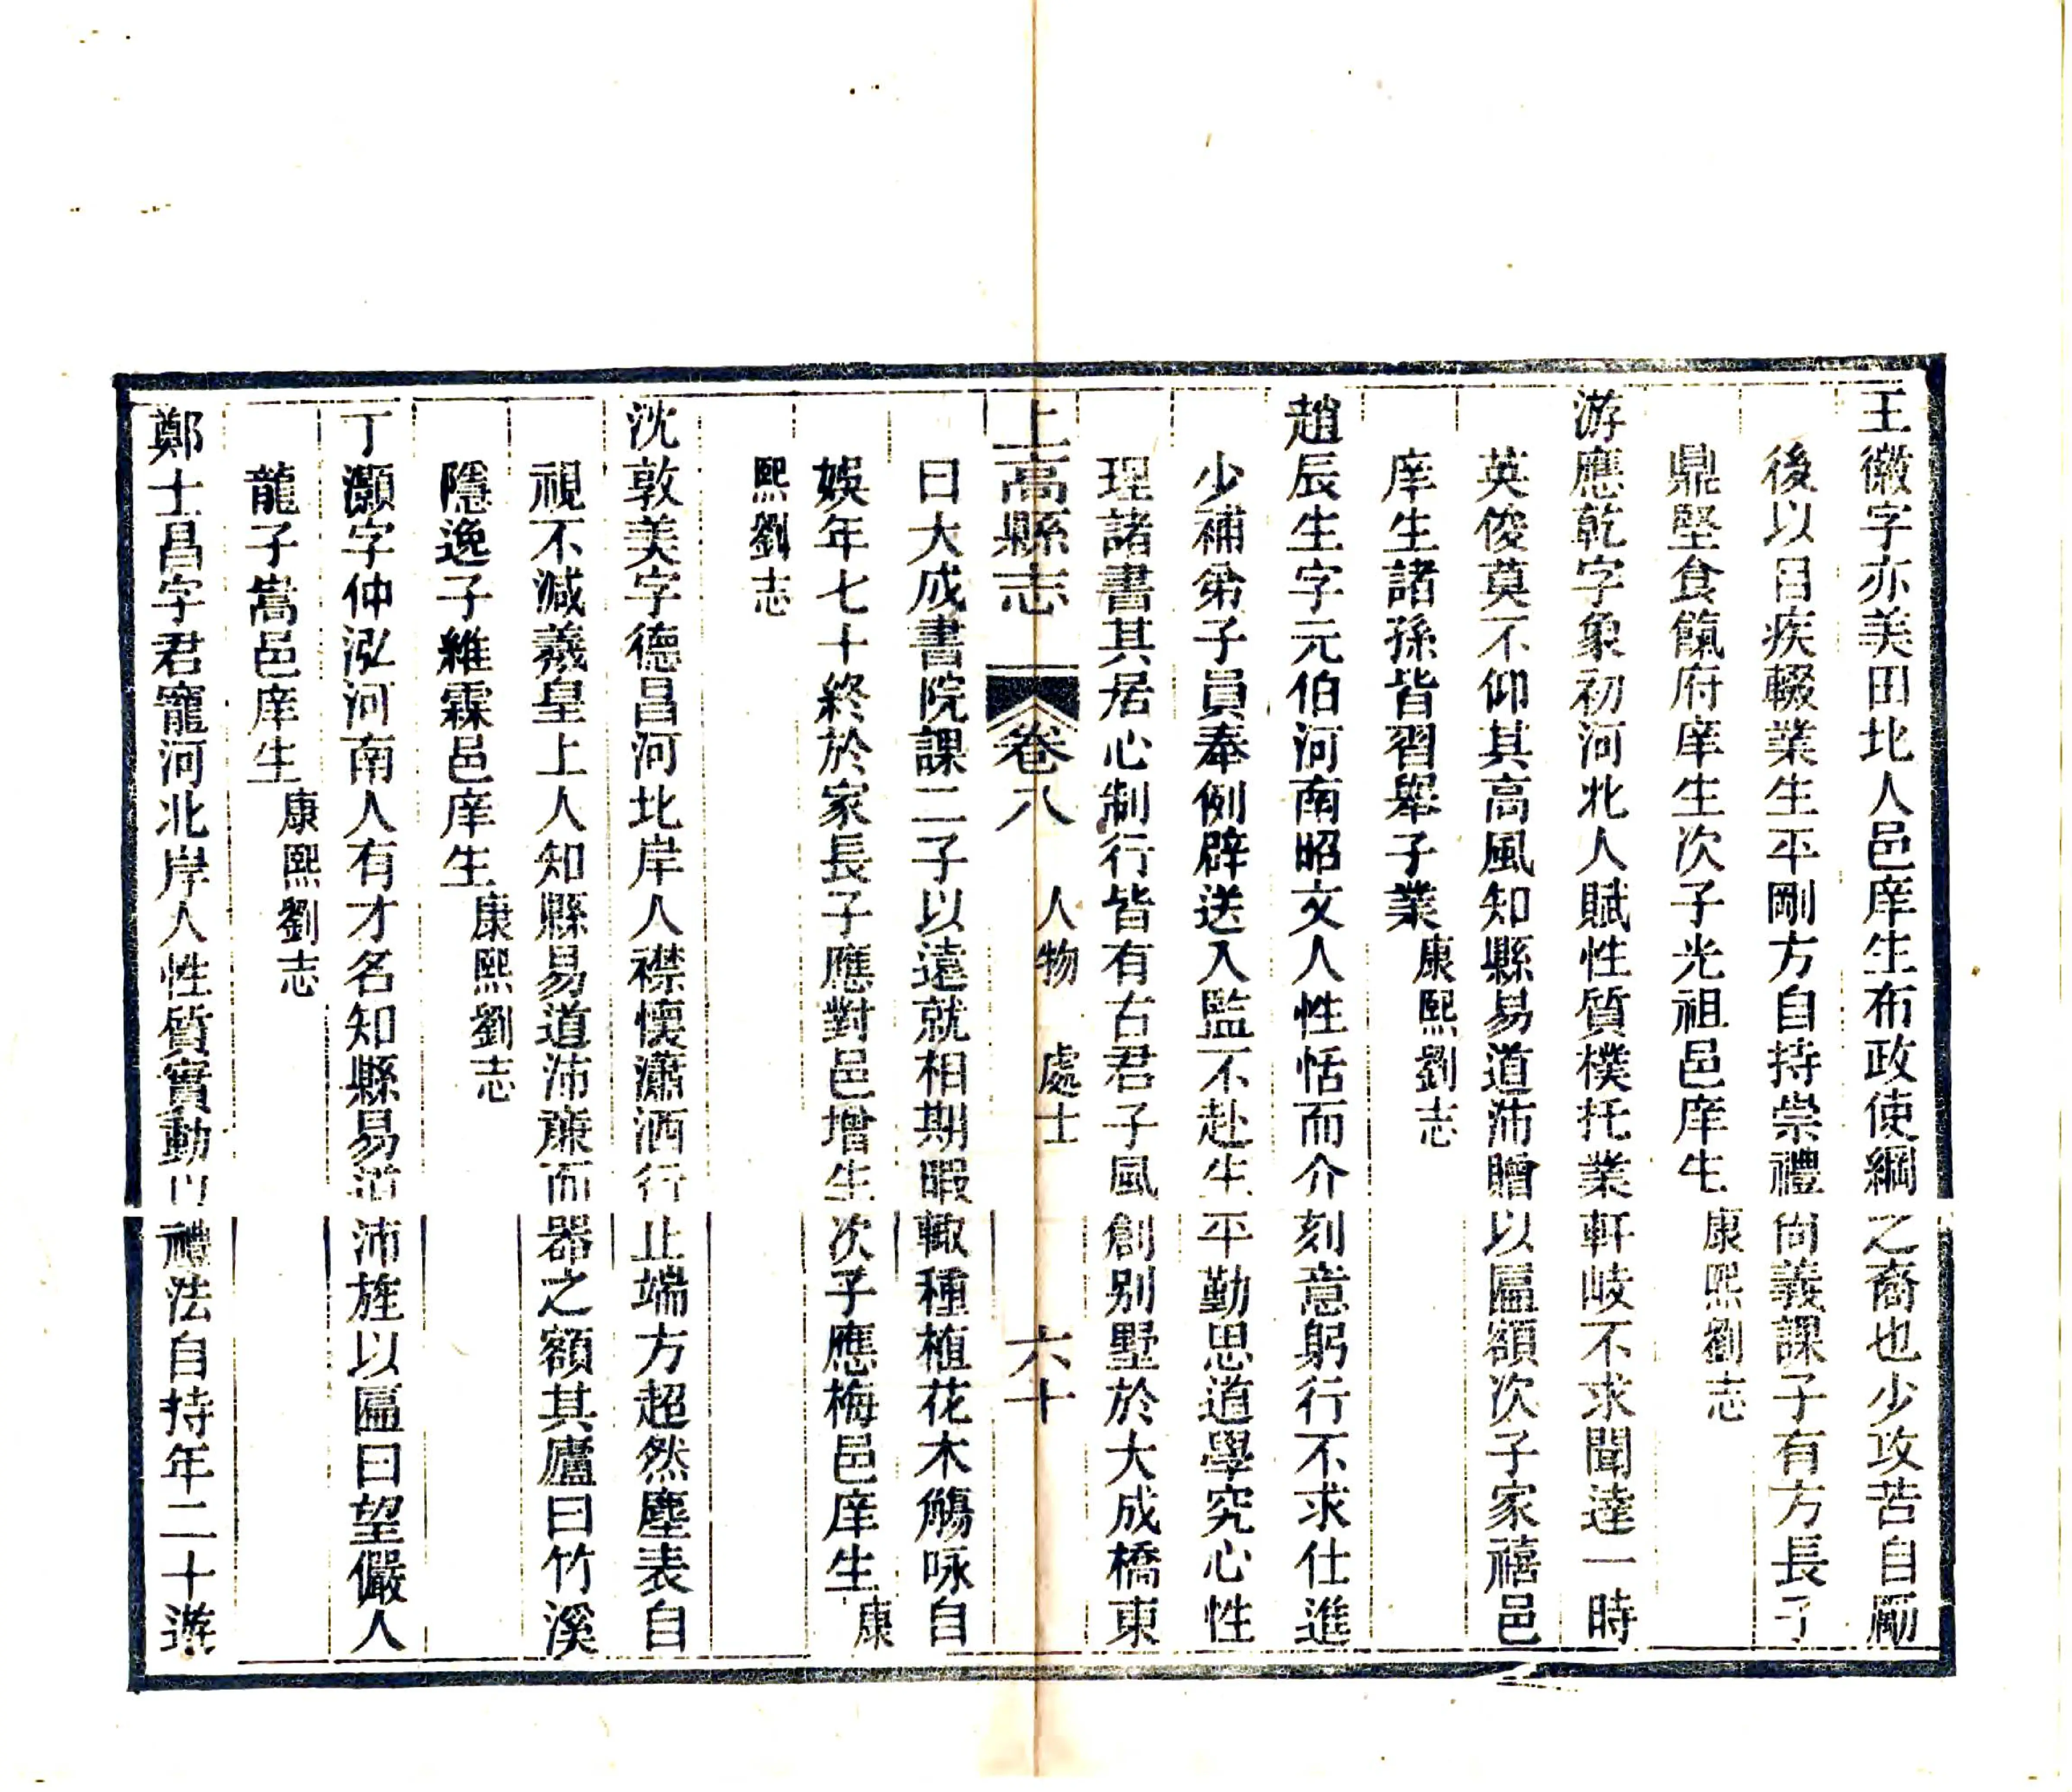 王徽字亦美田北人邑庠生布政使綱之裔也少攻苦自勵
後以目疾輟業生平剛方自持崇禮尙義課子有方長子
鼎堅食餼府庠生次子光祖邑庠生康熙劉志
游應乾字象初河北人賦性質樸托業軒岐不求聞達一時
英俊莫不仰其高風知縣易道沛贈以匾額次子家禧邑
庠生諸孫皆習舉子業康熙劉志
趙辰生字元伯河南昭文人性恬而介刻意躬行不求仕進
少補弟子員奉例辟送入監不赴生平勤思道學究心性
理諸書其居心制行皆有古君子風創別墅於大成橋東
上高縣志 卷八 人物 處士 六十
曰大成書院課二子以遠就相期暇輙種植花木觴咏自
娛年七十終於家長子應對邑增生次子應梅邑庠生康
熙劉志
沈敦美字德昌河北岸人襟懷瀟洒行止端方超然塵表自
視不減羲皇上人知縣易道沛廉而器之額其廬曰竹溪
隱逸子維霖邑庠生康熙劉志
丁灝字仲泓河南人有才名知縣易道沛旌以匾曰望儼人
龍子嵩邑庠生康熙劉志
鄭士昌字君寵河北岸人性質實動以禮法自持年二十遊